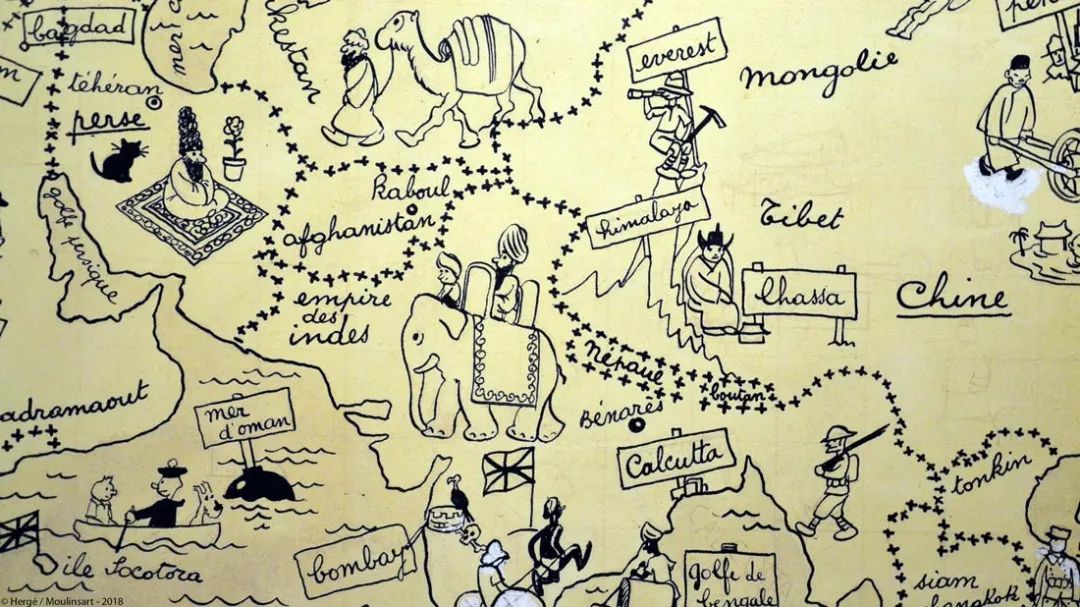 bagdad
mer
kestan
everest
mongolie
téhéran
perse
golfe persique
kaboul
afghanistan
himalaya
Tibet
lhassa
Chine
empire
des
indes
Népaul
boutan
adramaout
mer
d'oman
Bénarès
Calcutta
tonkin
bombay
île Socotora
golfe de
bengale
siam
© Hergé / Moulinsart - 2018